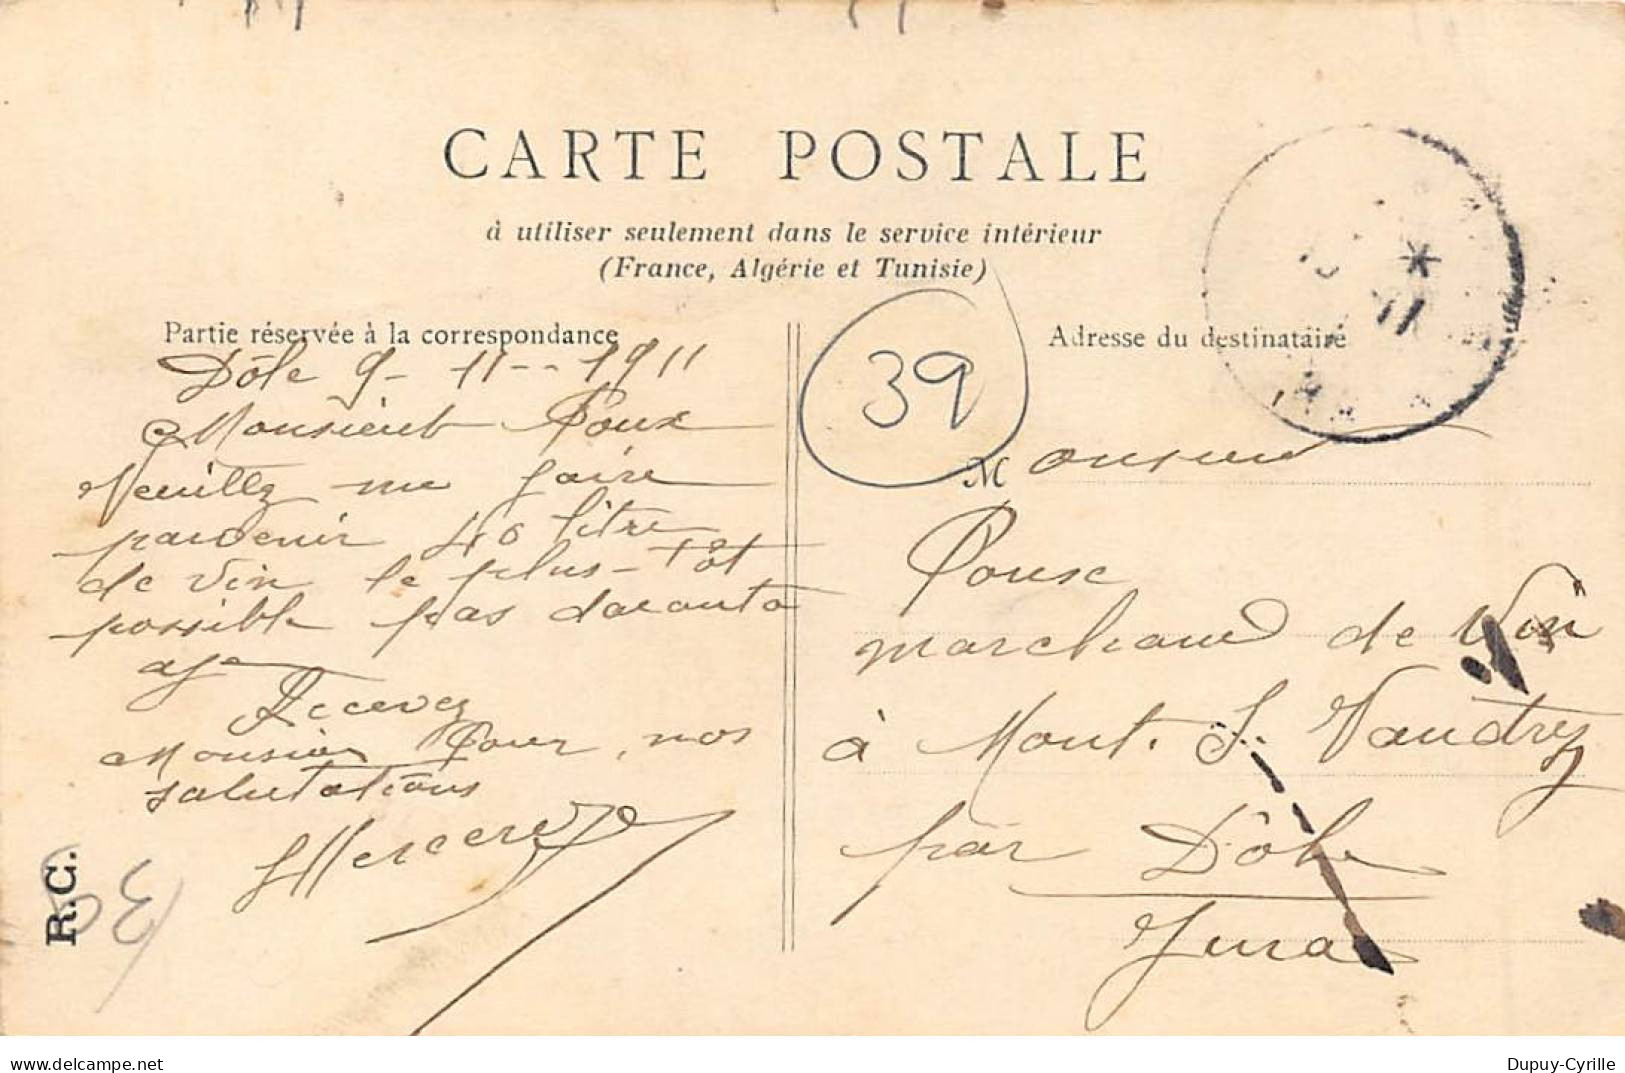 CARTE POSTALE
à utiliser seulement dans le service intérieur
(France, Algérie et Tunisie)
Partie réservée à la correspondance
Dôle 9-11--1911
Monsieur Poux
Veuillez me faire
parvenir 40 litre
de vin le plus-tôt
possible pas davanta
age
Recevez
Monsieur Poux, nos
salutations
39
Adresse du destinataire
Monsieur
Poux
marchand de Vin
à Mont. S. Vaudrez
par Dôle
Jura
R.C.
delcampe.net
Dupuy-Cyrille